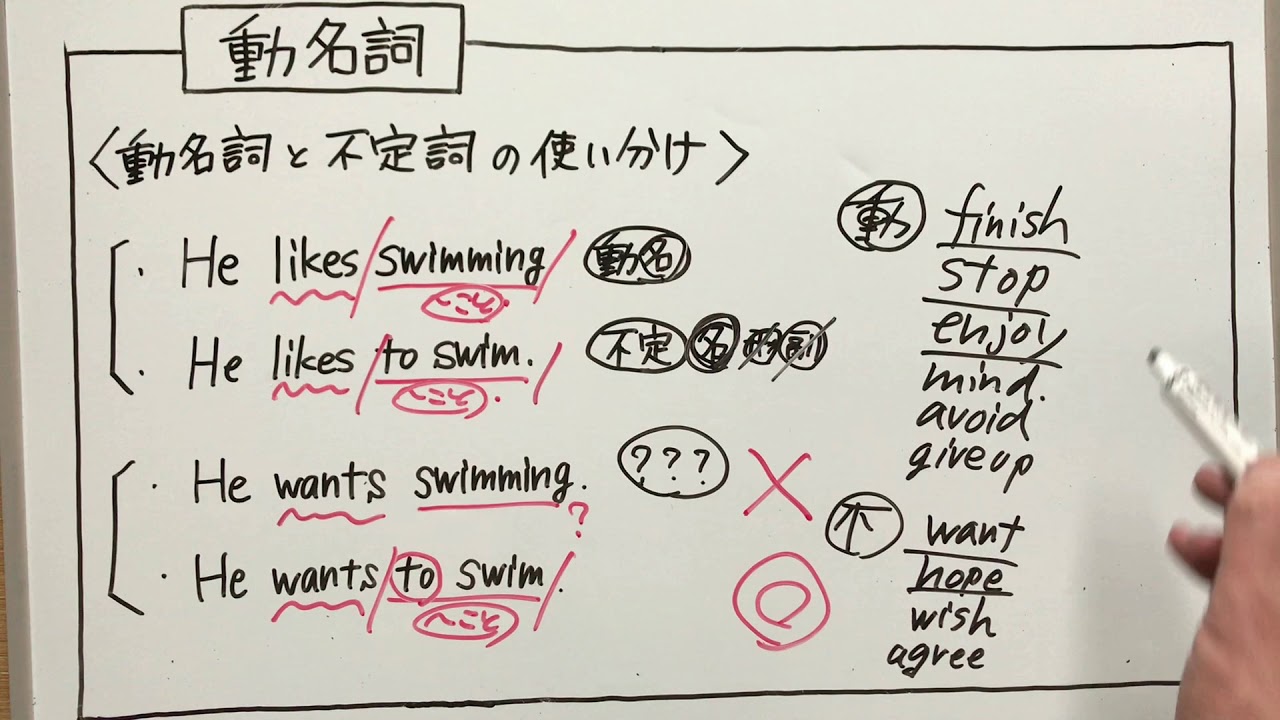 動名詞
〈動名詞と不定詞の使い分け〉
・He likes/swimming/ 動名
〜こと.
・He likes/to swim./ 不定 名 形 副
〜こと.
・He wants swimming. ??? ×
?
・He wants/to swim/. ◎
〜こと
動 finish
stop
enjoy
mind.
avoid
give up
不 want
hope
wish
agree